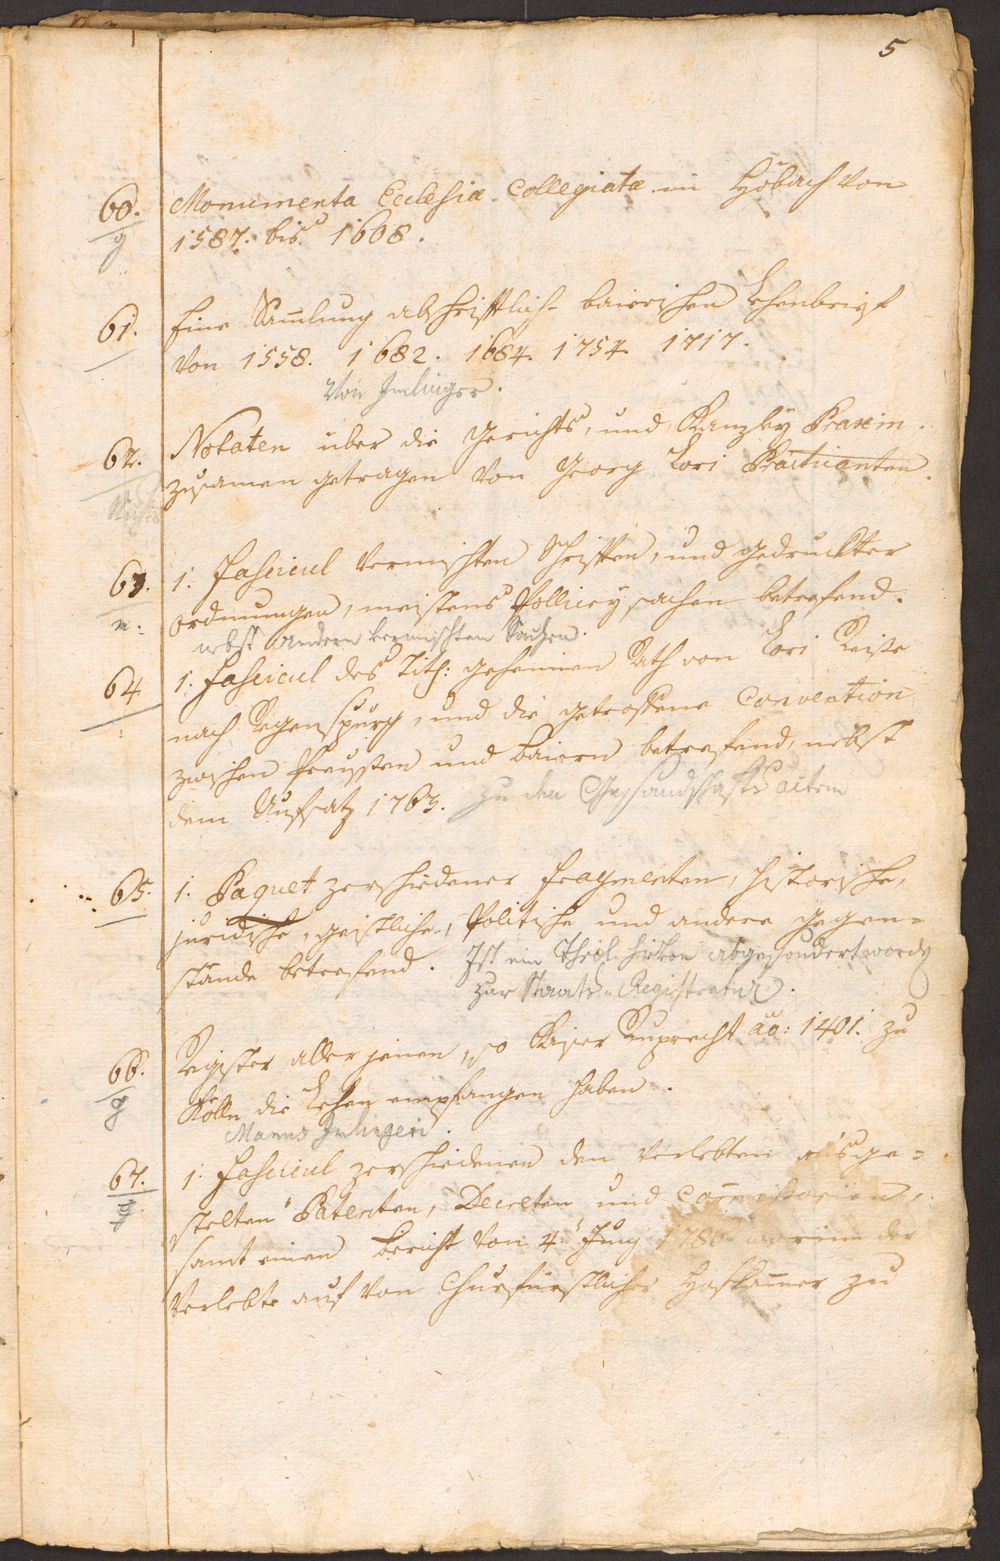 5
60. Monumenta Ecclesiæ Collegiatæ in Höbach von
g 1587. bis 1608.
61. Eine Samlung abschriftlich bairischen Lehenbrief
von 1558. 1682. 1684. 1754. 1717.
von
62. Notaten über die Gerichts, und Kanzley Praxin.
zusamen getragen von Georg Lori Practicanten.
63. 1. Fascicul vermischten Schriften, und gedruckter
m. ordnungen, meistens Pollicey sachen betrefend.
nebst andern vermischten Sachen.
64 1. Fascicul des Titl: geheimen Rath von Lori Reise
nach Regenspurg, und die getroffene Convention
zwischen Preussen und Baiern betrefend, nebst
dem Aufsatz 1763. zu den Gesandschafts acten
65. 1. Paquet zerschiedener Fragmenten, historische,
juridische, geistliche, Politische und andere gegen=
stände betrefend. Ist ein Theil hievon abgesondert worden
zur Staats-Registratur.
66. Register aller jenen, so Kaiser Ruprecht ao: 1401. zu
g Kölln die Lehen empfangen haben.
Manus
67. 1. Fascicul zerschiedenen dem Verlebten ausge=
g stelten Patenten, Decreten und Commissorien,
samt einen Bericht von 4. Juny 1786 worinn der
Verlebte auf von Churfürstlicher Hofkamer zu